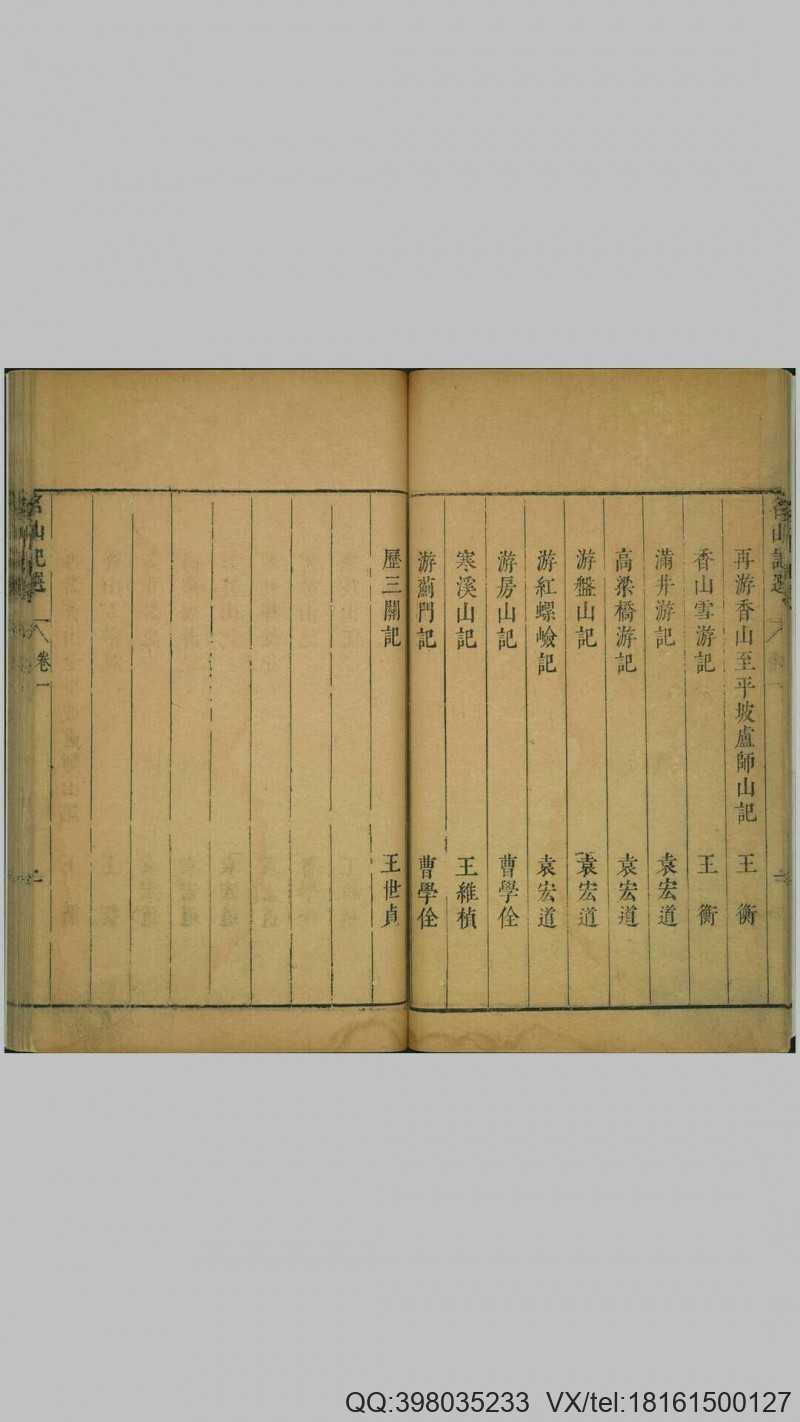 再游香山至平坡盧師山記 王衡
香山雪游記 王衡
滿井游記 袁宏道
高梁橋游記 袁宏道
游盤山記 袁宏道
游紅螺嶮記 袁宏道
游房山記 曹學佺
寒溪山記 王維楨
游薊門記 曹學佺
歷三關記 王世貞
名山記選 卷一 二
QQ:398035233 VX/tel:18161500127